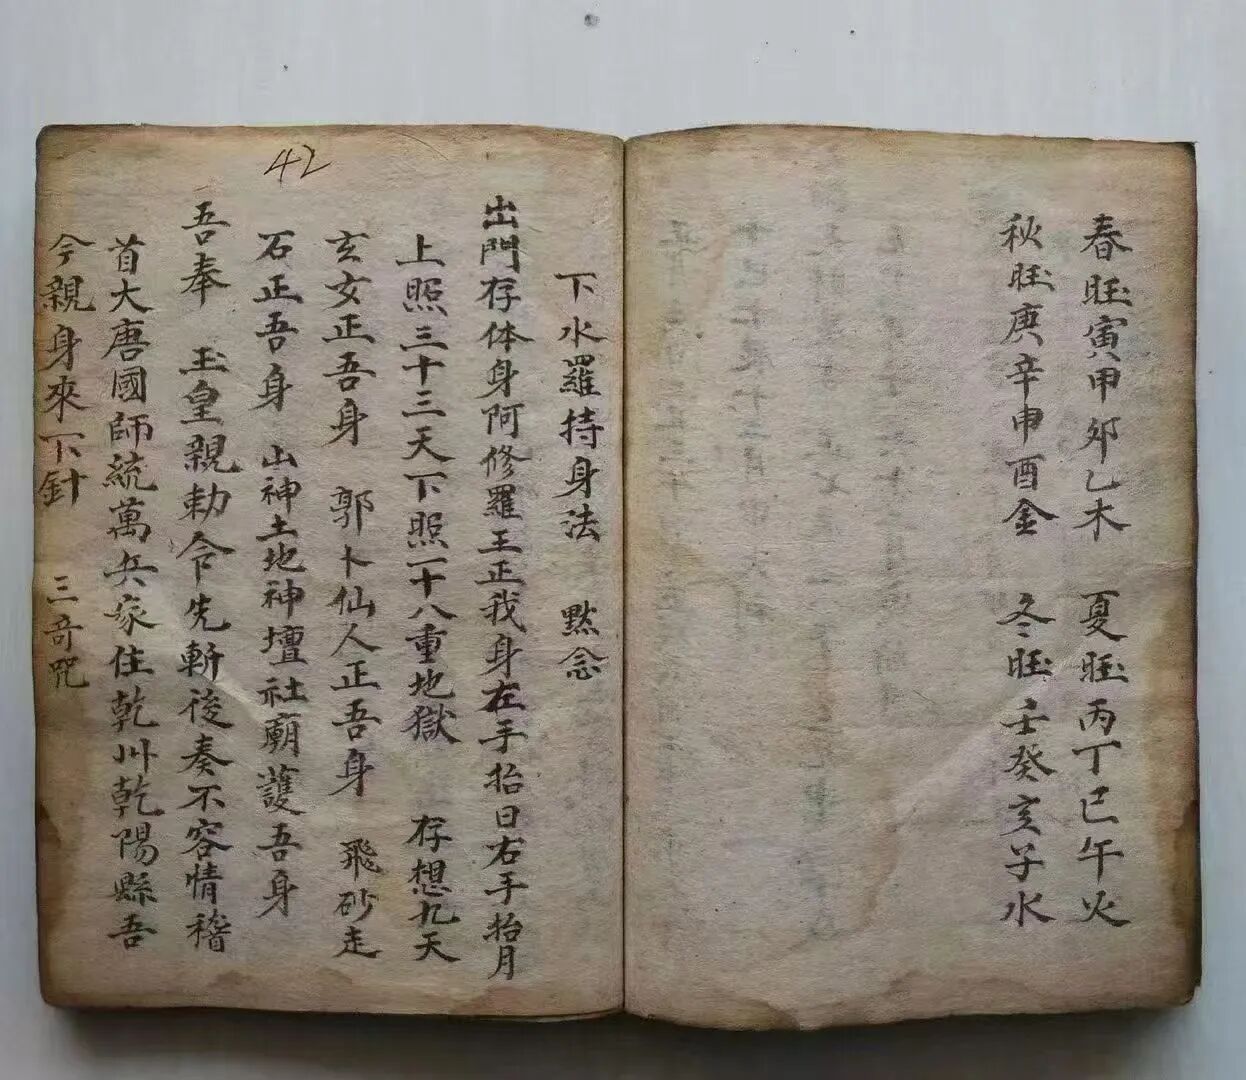 春旺寅甲卯乙木　夏旺丙丁巳午火
秋旺庚辛申酉金　冬旺壬癸亥子水
42
下水羅持身法　默念
出門存体身阿修羅王正我身左手抬日右手抬月
上照三十三天下照一十八重地獄　存想九天
玄女正吾身　郭卜仙人正吾身　飛砂走
石正吾身　山神土地神壇社廟護吾身
吾奉　玉皇親勅令先斬後奏不容情稽
首大唐國師統萬兵家住乾州乾陽縣吾
今親身來下針　三奇咒